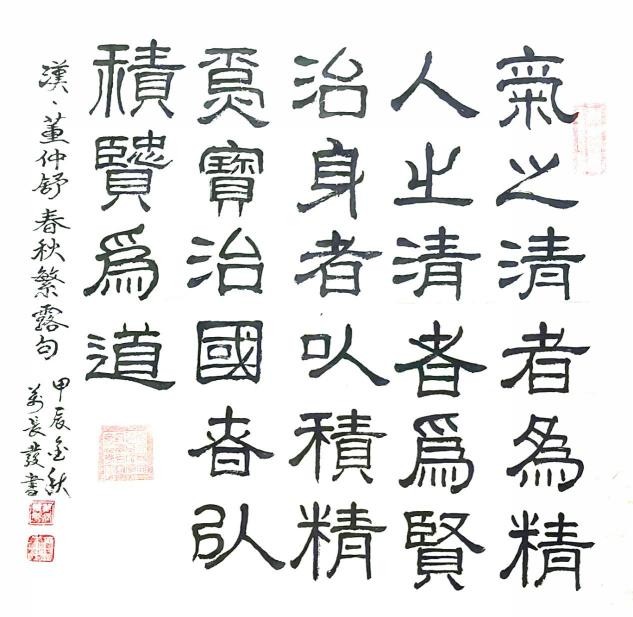 氣之清者為精
人之清者為賢
治身者以積精
為寶治國者以
積賢為道
漢、董仲舒春秋繁露句
甲辰金秋
萬長發書